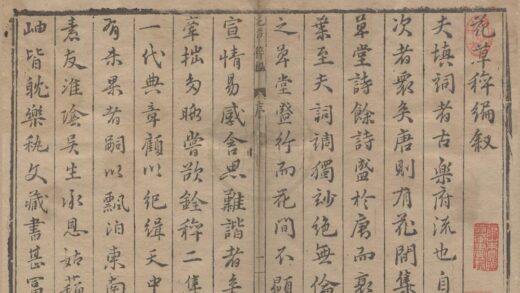 花草稡編敘
夫填詞者古樂府流也自
次者衆矣唐則有花間集
草堂詩餘詩盛於唐而衰
葉至夫詞調獨妙絕無倫
之草堂盛行而花間不顯
序
一
宣情易感含思難諧者
牽拙多暇嘗欲銓稡二集
一代典章顧以紀緝天中
有未果者嗣以飄泊東南
素友淮陰吳生承恩姑蘇
岫皆耽樂藝文藏書甚富